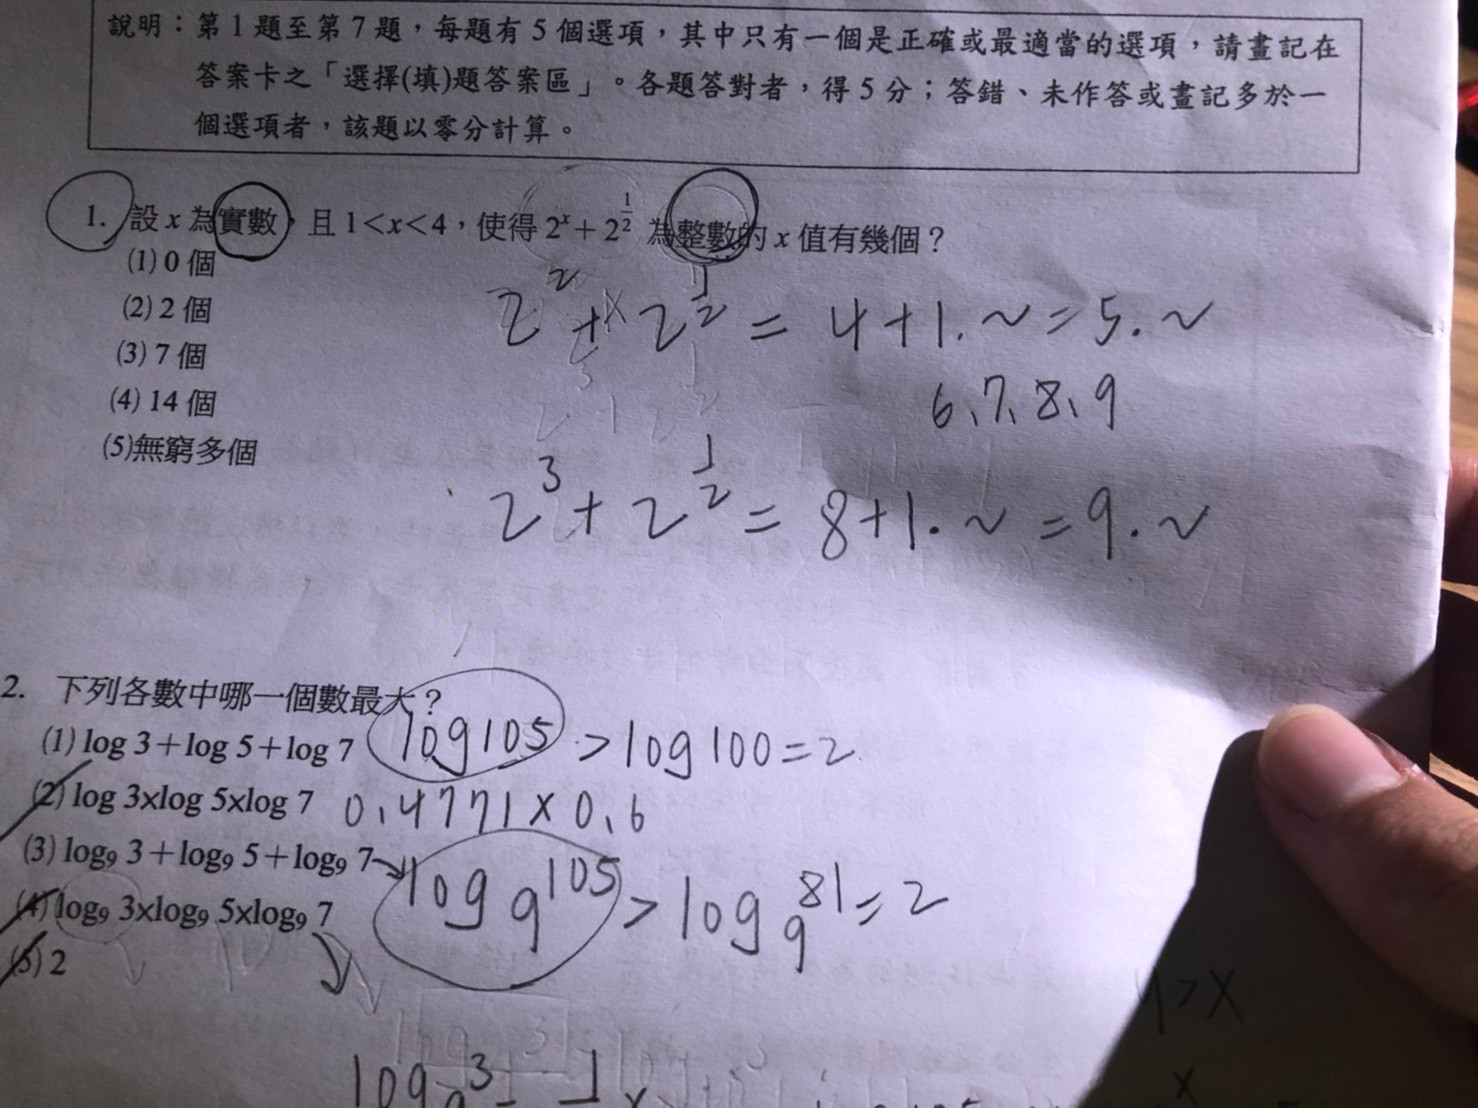 說明：第1題至第7題，每題有5個選項，其中只有一個是正確或最適當的選項，請畫記在
答案卡之「選擇(填)題答案區」。各題答對者，得5分；答錯、未作答或畫記多於一
個選項者，該題以零分計算。
1. 設 x 為實數，且 1<x<4，使得 2^x + 2^{1/2} 為整數的 x 值有幾個？
(1) 0 個
(2) 2 個
(3) 7 個
(4) 14 個
(5)無窮多個
2^2 + 2^{1/2} = 4+1.~ = 5.~
6、7、8、9
2^3 + 2^{1/2} = 8+1.~ = 9.~
2. 下列各數中哪一個數最大？
(1) log 3+log 5+log 7 log105 > log100=2
(2) log 3×log 5×log 7 0.4771×0.6
(3) log₉ 3+log₉ 5+log₉ 7 → log₉105 > log₉81=2
(4) log₉ 3×log₉ 5×log₉ 7
(5) 2
y>x
x